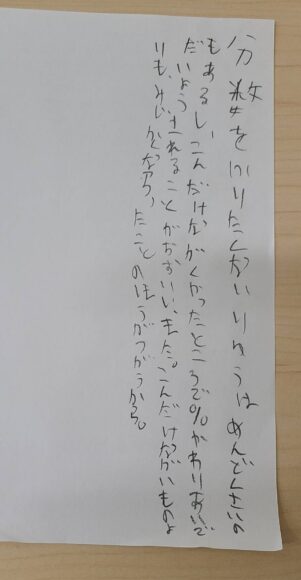 分数をやりたくないりゆうはめんどくさいの
もあるし、こんだけながくかったところで%がわりあいで
だいようされることがおおいい、また。こんだけながいものよ
りも、みじかくなった、ことのほうがつがうから。